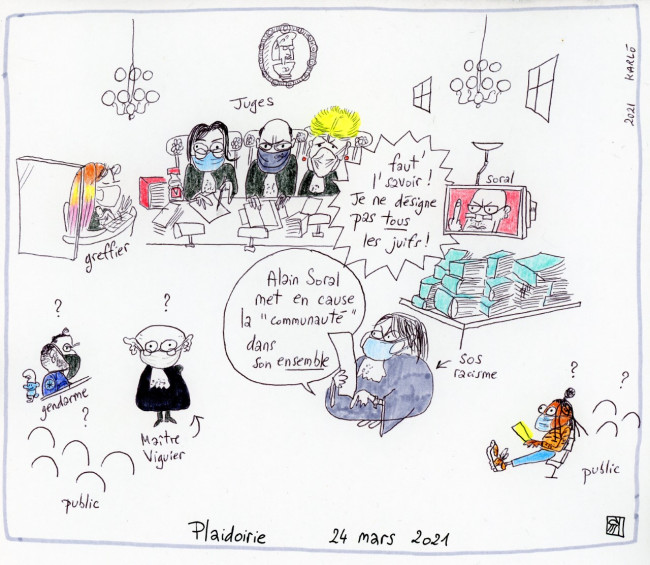 2021 KARLÖ
Juges
faut
l'savoir!
Je ne désigne
pas tous
les juifs!
soral
greffier
Alain Soral
met en cause
la "communauté"
dans
son ensemble
SOS
racisme
?
gendarme
?
Maître
Viguier
?
public
?
?
public
Plaidoirie 24 mars 2021